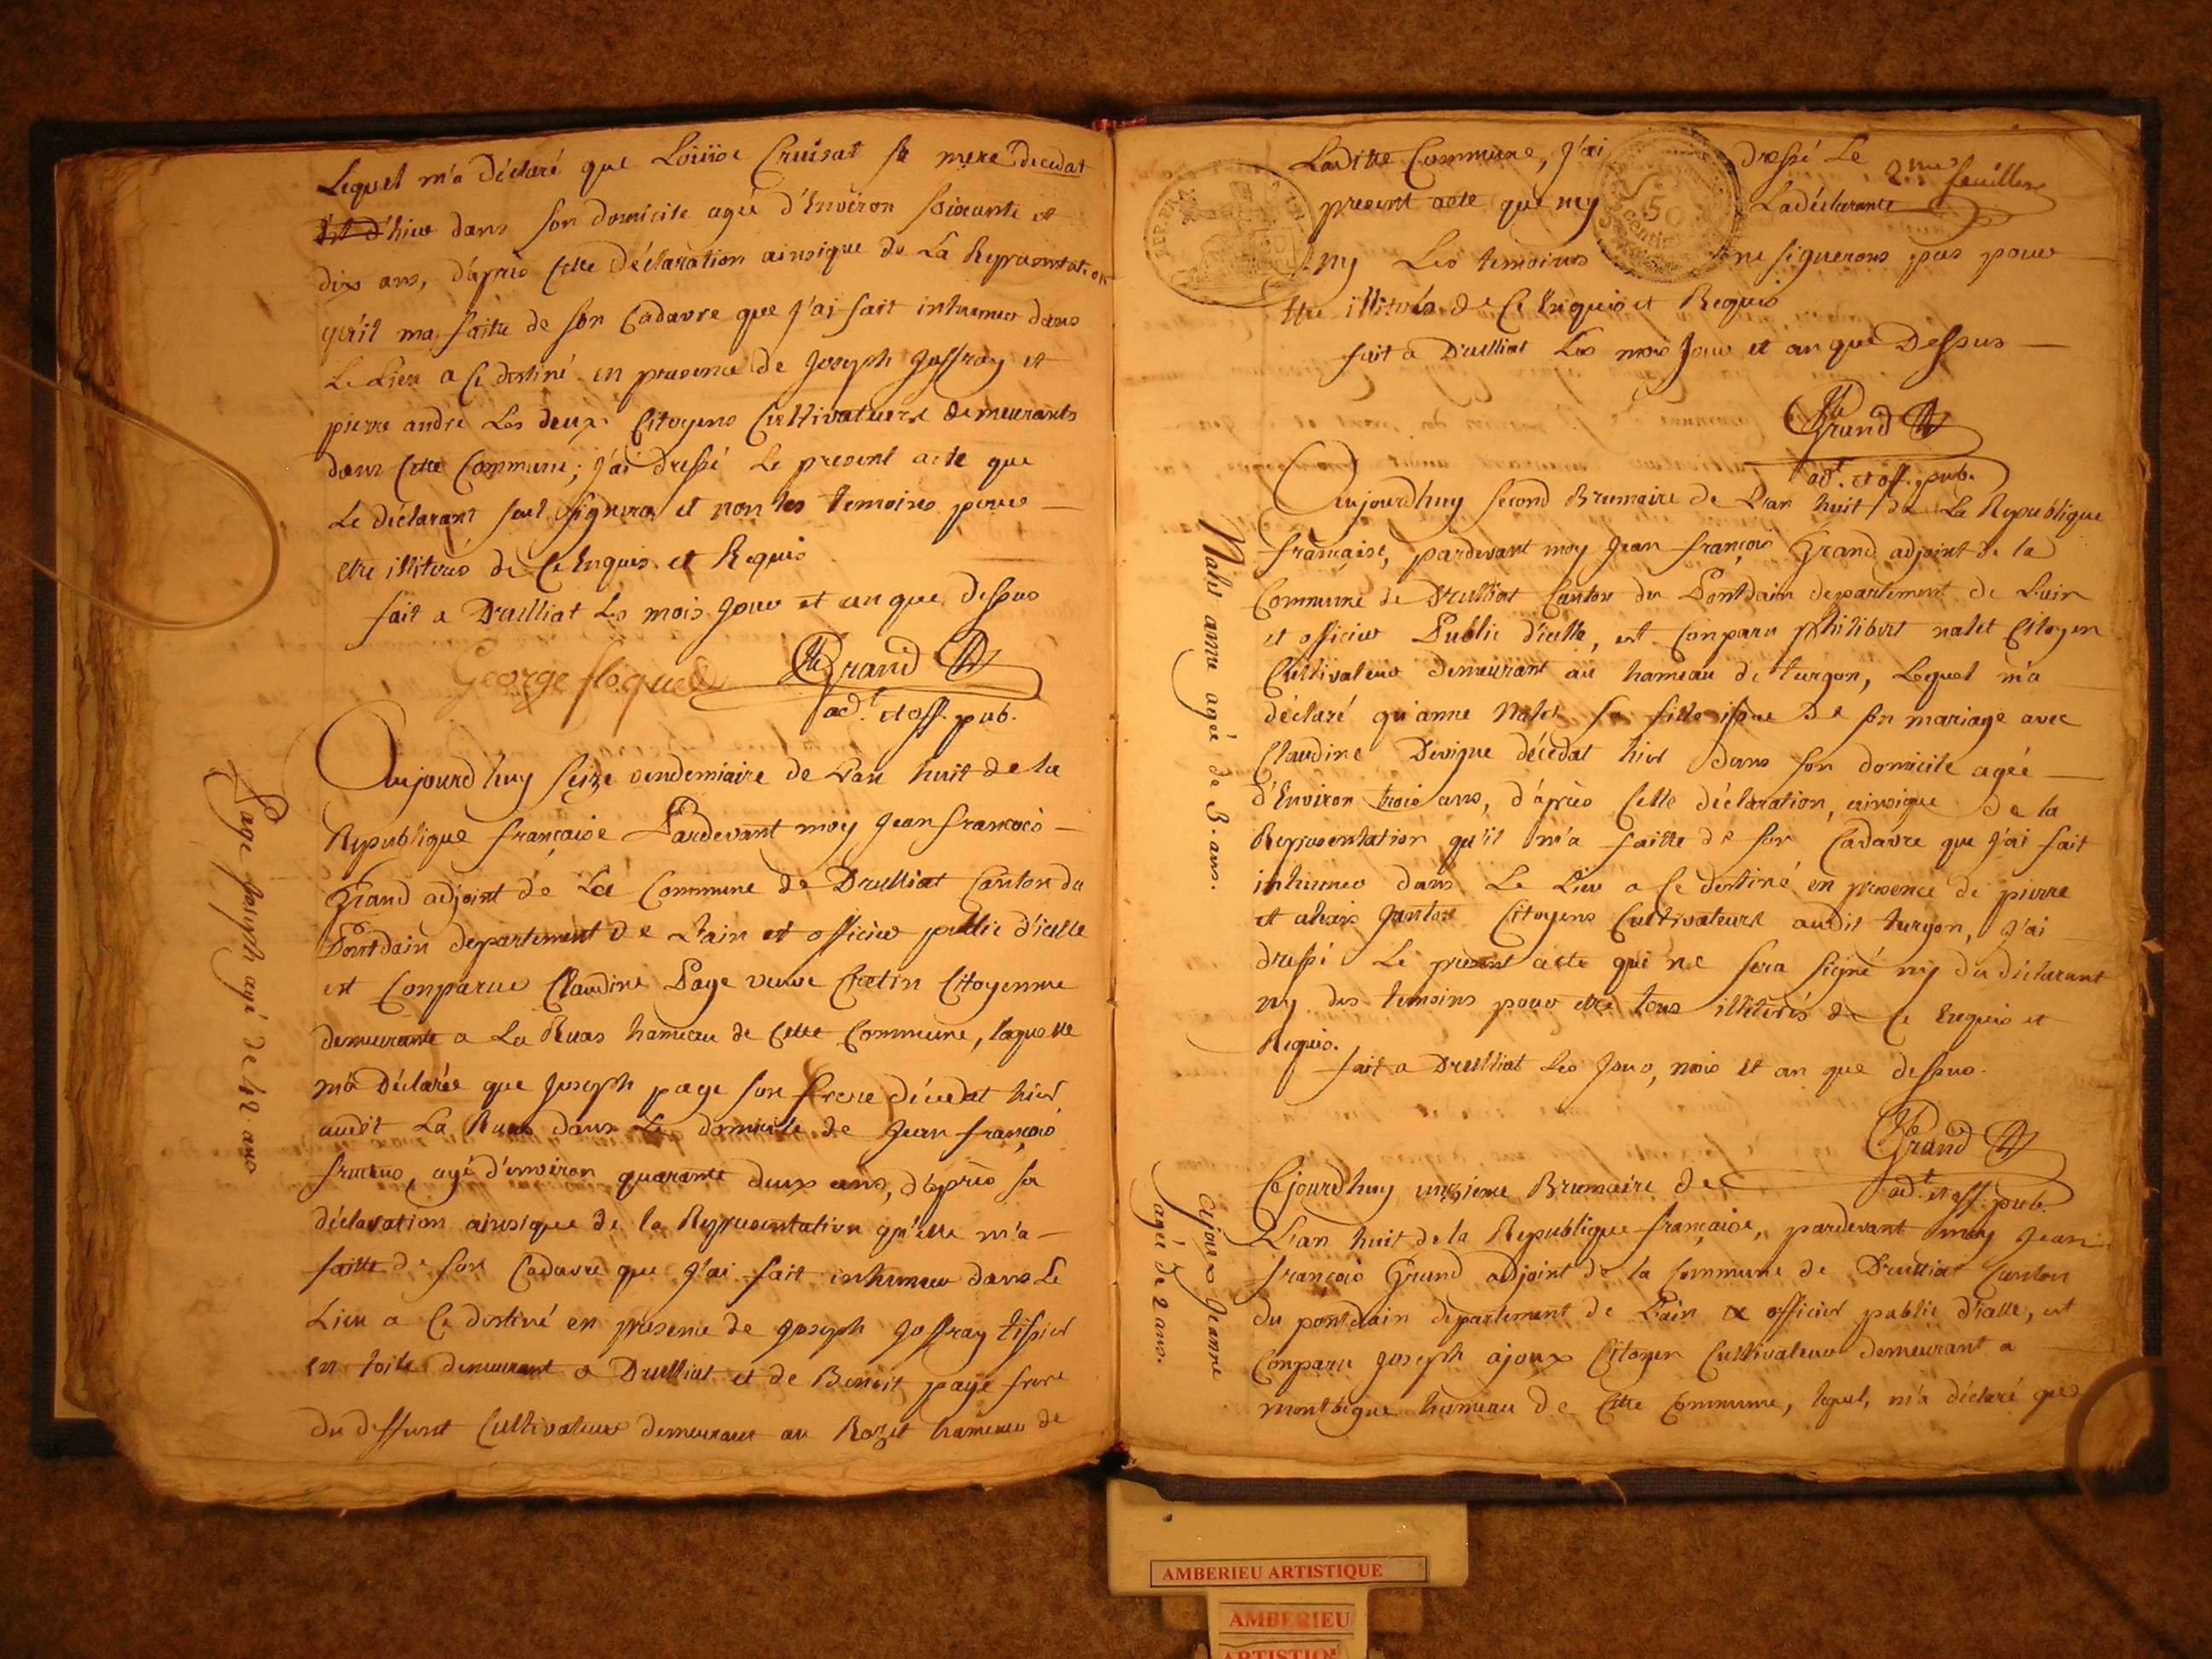 Lequel m'a déclaré que Loüise Cruisat sa mere décedat
d'hier dans son domicile agée d'Environ soixante et
dix ans, d'après cette déclaration ainsique de La Representation
qu'il ma faite de son Cadavre que j'ai fait inhumer dans
Le Lieu a ce destiné en presence de joseph joffray et
pierre andré Les deux Citoyens Cultivateurs demeurants
dans cette Commune; j'ai dressé Le present acte que
Le déclarant seul signera et non les temoins pour
etre illiterés de ce Enquis et Requis
fait a Druilliat Les mois jour et an que dessus
George floquet Grand
adt. et off. pub.
Aujourd'huy seize vendemiaire de L'an huit de la
Republique française Pardevant moy jean francois
Grand adjoint de La Commune de Druilliat Canton du
Pontdain departement de L'ain et officier public d'icelle
est Comparue Claudine Page veuve Cretin Citoyenne
demeurante a La Ruas hameau de cette Commune, laquelle
m'a Déclarée que joseph page son frere décedat hier
audit La Ruas dans Le domicile de jean françois
agé d'environ quarante deux ans, d'après sa
déclaration ainsique de la Representation qu'elle m'a
faitte de son Cadavre que j'ai fait inhumer dans Le
Lieu a Ce destiné en presence de joseph joffray tissier
en toile demeurant a Druilliat et de Benoit page frere
du deffunt Cultivateur demeurant au Rozet hameau de
Page joseph agé de 42 ans
2me feuillet
Laditte Commune, j'ai dressé Le
present acte que ny La déclarante
ny Les temoins ne signerons pas pour
etre illiterés de Ce Enquis et Requis
fait a Druilliat Les mois jour et an que Dessus
Grand
adt. et off. pub.
Aujourdhuy second Brumaire de L'an huit de La Republique
française, pardevant moy jean françois Grand adjoint de la
Commune de Druilliat Canton du Pontdain departement de L'ain
et officier Public d'icelle, est Comparu philibert nalet Citoyen
Cultivateur demeurant au hameau de turgon, Lequel m'a
déclaré qu'anne Nalet sa fille issue de son mariage avec
Claudine décédat hier dans son domicile agée
d'Environ trois ans, d'après cette déclaration, ainsique de la
Representation qu'il m'a faitte de son Cadavre que j'ai fait
inhumer dans Le Lieu a Ce destiné en presence de pierre
et Citoyens Cultivateurs audit turgon, j'ai
dressé Le present acte qui ne sera signé ny du déclarant
ny des temoins pour etre tous illiterés de Ce Enquis et
Requis.
fait a Druilliat Les jour, mois et an que dessus.
Grand
adt. et off. pub.
Nalet anne agée de 3. ans.
Cejourdhuy onzieme Brumaire de
L'an huit de la Republique française, pardevant moy jean
françois Grand adjoint de la Commune de Druilliat Canton
du pontdain departement de L'ain et officier public d'icelle, est
Comparu joseph ajoux Citoyen Cultivateur demeurant a
montbegue hameau de Cette Commune, lequel, m'a déclaré que
Ajoux Jeanne
agée de 2 ans.
REP. FRA
50
centi
AMBERIEU ARTISTIQUE
AMBERIEU
ARTISTIQ